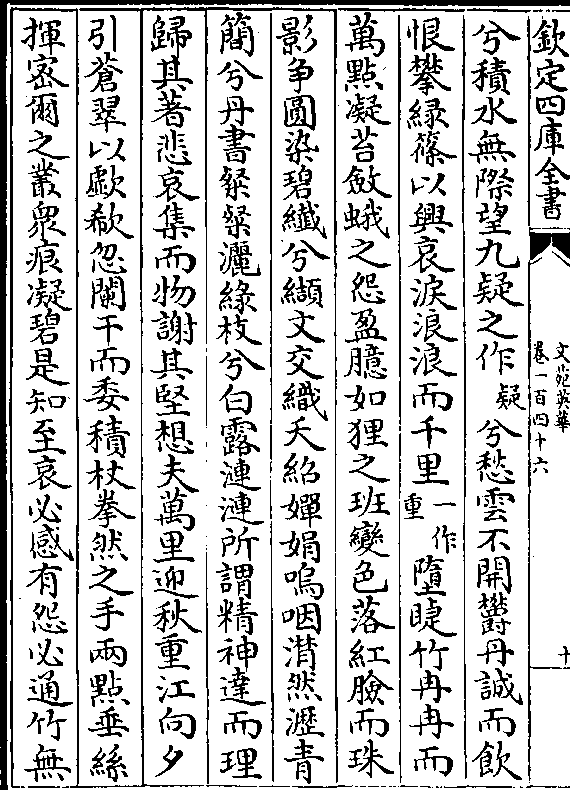 欽定四庫全書
文苑英華
卷一百四十六
十
兮積水無際望九疑之作疑兮愁雲不開欝丹誠而飲
恨攀緑篠以興哀淚浪浪而千里一作重墮睫竹冉冉而
萬點凝苔斂蛾之怨盈臆如狸之班變色落紅臉而珠
影爭圓染碧纖兮纈文交織夭紹嬋娟嗚咽潸然瀝青
簡兮丹書粲粲灑緑枝兮白露漣漣所謂精神達而理
歸其著悲哀集而物謝其堅想夫萬里迎秋重江向夕
引蒼翠以歔欷忽闌干而委積杖拳然之手兩點垂絲
揮宻爾之叢衆痕凝碧是知至哀必感有怨必通竹無